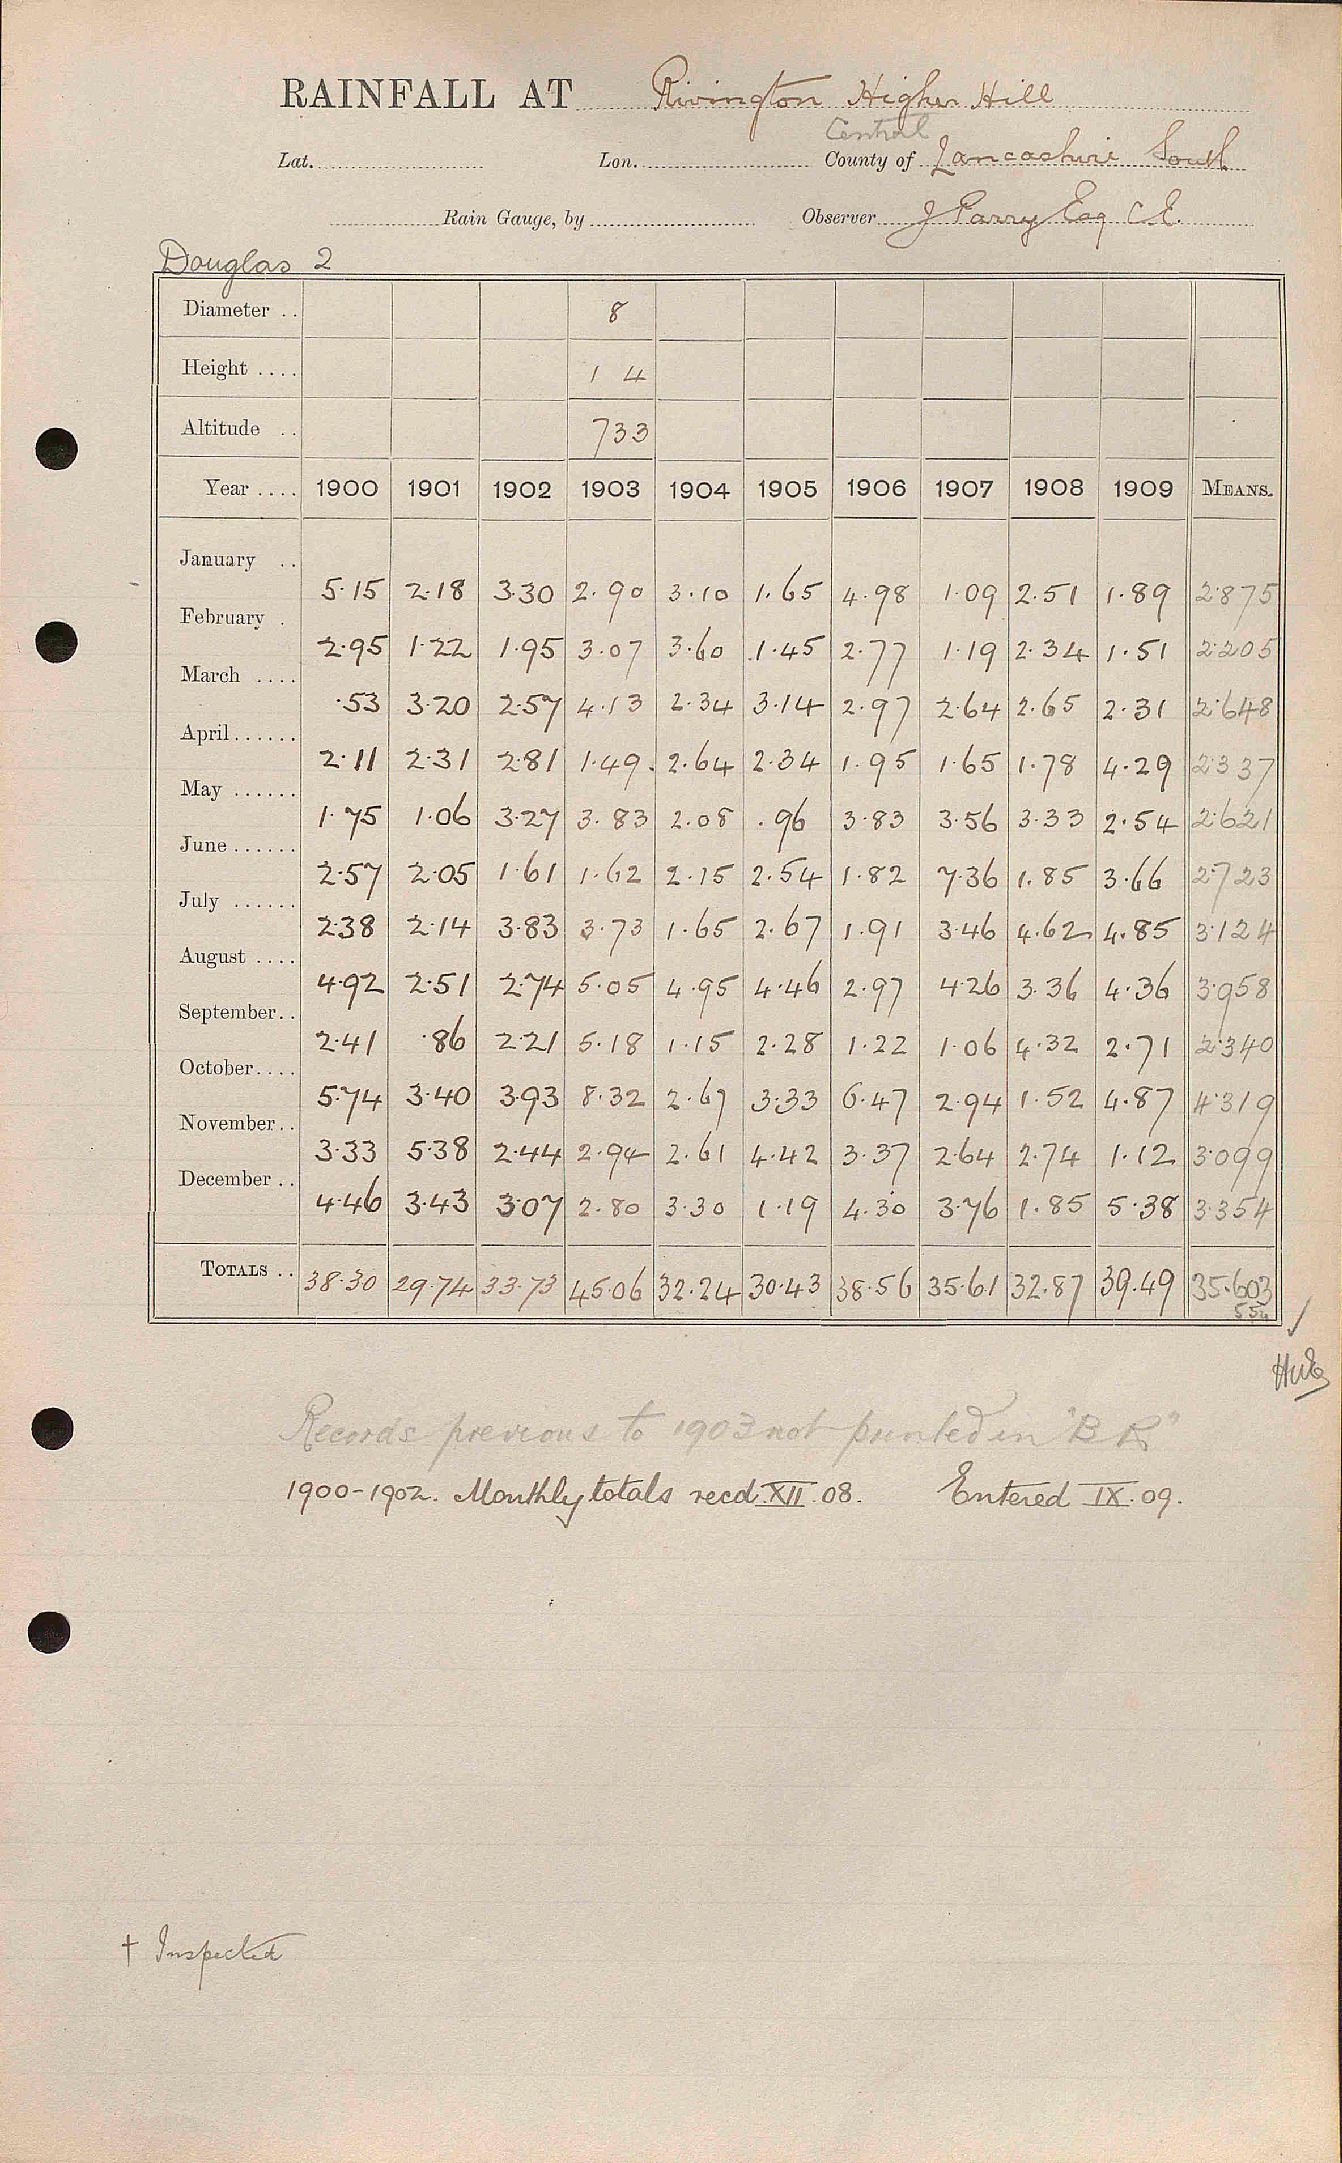 RAINFALL AT Rivington Higher Hill
Central
Lat. Lon. County of Lancashire South
Rain Gauge, by Observer J Parry Esq C.E.
Douglas 2
Diameter .. 8
Height .... 1 4
Altitude .. 733
Year .... 1900 1901 1902 1903 1904 1905 1906 1907 1908 1909 MEANS.
January ..
5.15 2.18 3.30 2.90 3.10 1.65 4.98 1.09 2.51 1.89 2.875
February .
2.95 1.22 1.95 3.07 3.60 1.45 2.77 1.19 2.34 1.51 2.205
March ....
.53 3.20 2.57 4.13 2.34 3.14 2.97 2.64 2.65 2.31 2.648
April......
2.11 2.31 2.81 1.49. 2.64 2.34 1.95 1.65 1.78 4.29 2.337
May ......
1.75 1.06 3.27 3.83 2.08 .96 3.83 3.56 3.33 2.54 2.621
June ......
2.57 2.05 1.61 1.62 2.15 2.54 1.82 7.36 1.85 3.66 2.723
July ......
2.38 2.14 3.83 3.73 1.65 2.67 1.91 3.46 4.62 4.85 3.124
August ....
4.92 2.51 2.74 5.05 4.95 4.46 2.97 4.26 3.36 4.36 3.958
September..
2.41 .86 2.21 5.18 1.15 2.28 1.22 1.06 4.32 2.71 2.340
October....
5.74 3.40 3.93 8.32 2.67 3.33 6.47 2.94 1.52 4.87 4.319
November..
3.33 5.38 2.44 2.94 2.61 4.42 3.37 2.64 2.74 1.12 3.099
December ..
4.46 3.43 3.07 2.80 3.30 1.19 4.30 3.76 1.85 5.38 3.354
TOTALS .. 38.30 29.74 33.73 45.06 32.24 30.43 38.56 35.61 32.87 39.49 35.603
Records previous to 1903 not printed in "B R"
1900-1902. Monthly totals recd. XII.08. Entered IX.09.
† Inspected